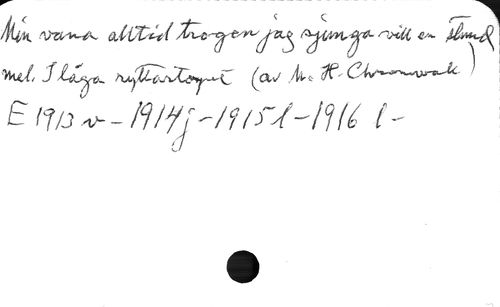 Min vana alltid trogen jag sjunga vill en stund
mel. I låga ryttartorpet (av M. H. Chronwall)
E 1913 v - 1914 j - 1915 l - 1916 l -